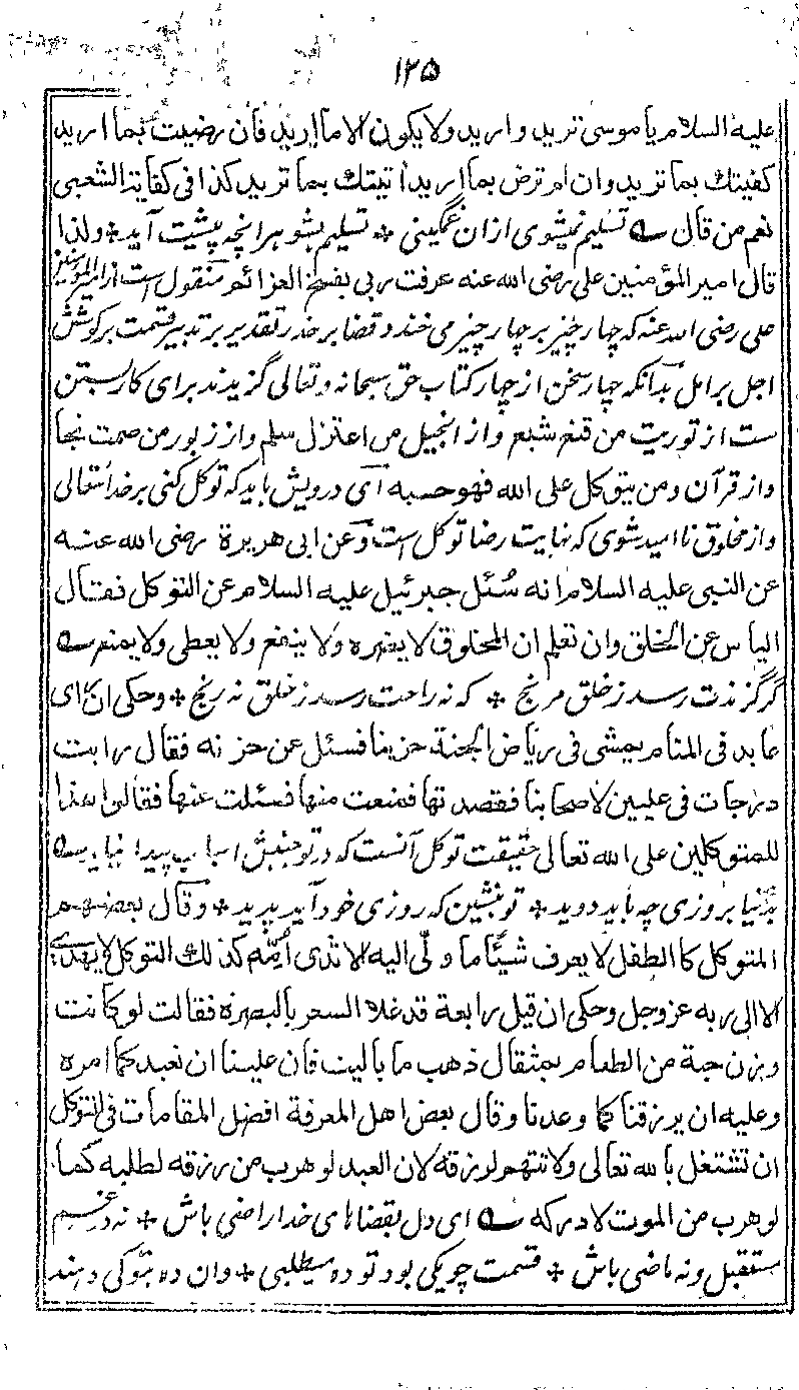 ۱۲۵
علیه السلام یا موسی ترید و ارید ولا یکون الا ما ارید فان رضیت بما ارید
کفیتك بما ترید وان لم ترض بما ارید اتیتك بما ترید کذا فی کفایة الشعبی
نعم من قال ؎ تسلیم نمیشوی ازان غمگینی * تسلیم بشو هر انچه پیشت آید * ولذا
قال امیر المؤمنین علی رضی الله عنه عرفت ربی بفسخ العزائم منقول است از امیر المؤمنین
علی رضی الله عنه که چهار چیز بر چهار چیز می خندد قضا بر حذر تقدیر بر تدبیر قسمت بر کوشش
اجل بر امل بدانکه چهار سخن از چهار کتاب حق سبحانه وتعالی گزیدند برای کار بستن
ست از توریت من قنع شبع و از انجیل من اعتزل سلم و از زبور من صمت نجا
و از قرآن ومن یتوکل علی الله فهو حسبه ای درویش باید که توکل کنی بر خدا تعالی
و از مخلوق نا امید شوی که نهایت رضا توکل است وعن ابی هریرة رضی الله عنه
عن النبی علیه السلام انه سُئل جبرئیل علیه السلام عن التوکل فقال
الیاس عن الخلق وان تعلم ان المخلوق لا یضره ولا ینفع ولا یعطی ولا یمنع ؎
گر گزندت رسد ز خلق مرنج * که نه راحت رسد ز خلق نه رنج * وحکی انه رای
عابد فی المنام یمشی فی ریاض الجنة حزینا فسئل عن حزنه فقال رایت
درجات فی علیین لاصحابنا فقصدتها فمنعت منها فسئلت عنها فقالی هذا
للمتوکلین علی الله تعالی حقیقت توکل آنست که در تو جنبش اسباب پیدا نیاید ؎
بدنیا بروزی چه باید دوید * تو بنشین که روزی خود آید پدید * وقال بعضهم
المتوکل کالطفل لا یعرف شیئا ما ولّی الیه الا ثدی اُمّه کذلك التوکل لا یهدی
الا الی ربه عز وجل وحکی ان قیل رابعة قد غلا السعر بالبصرة فقالت لو کانت
وزن حبة من الطعام بمثقال ذهب ما بالیت فان علینا ان نعبد کما امره
وعلیه ان یرزقنا کما وعدنا وقال بعض اهل المعرفة افضل المقامات فی التوکل
ان تشتغل بالله تعالی ولا تتهم لرزقه لان العبد لو هرب من رزقه لطلبه کما
لو هرب من الموت لادرکه ؎ ای دل بقضاهای خدا راضی باش * نه در غم
مستقبل ونه ماضی باش * قسمت چو یکی بود تو ده میطلبی * وان ده بتو کی دهند